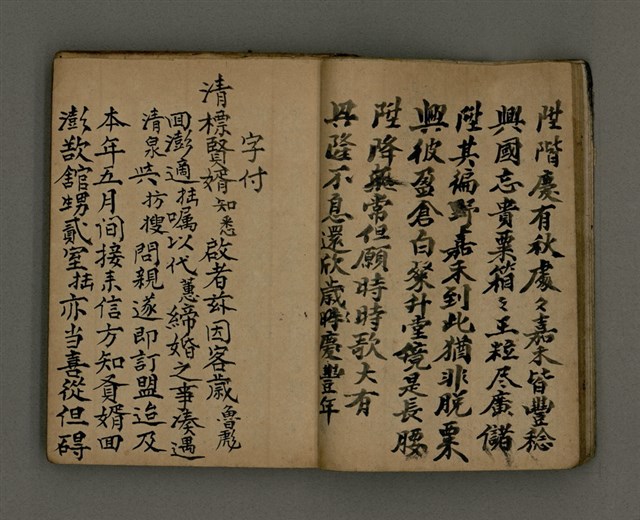 陞階慶有秋處々嘉禾皆豐稔
興國忘貴粟箱々玉粒尽廣儲
陞其徧野嘉禾到此猶非脱粟
興彼盈倉白粲升堂鏡是長腰
陞降無常但願時時歌大有
興隆不息還欣歲歲慶豐年
字付
清標賢婿知悉啟者茲因客歲魯彪
回澎適拙嘱以代蕙締婚之事湊遇
清泉共坊搜問親遂即訂盟迨及
本年五月间接来信方知賢婿回
澎欲舘甥貳室拙亦当喜從但碍